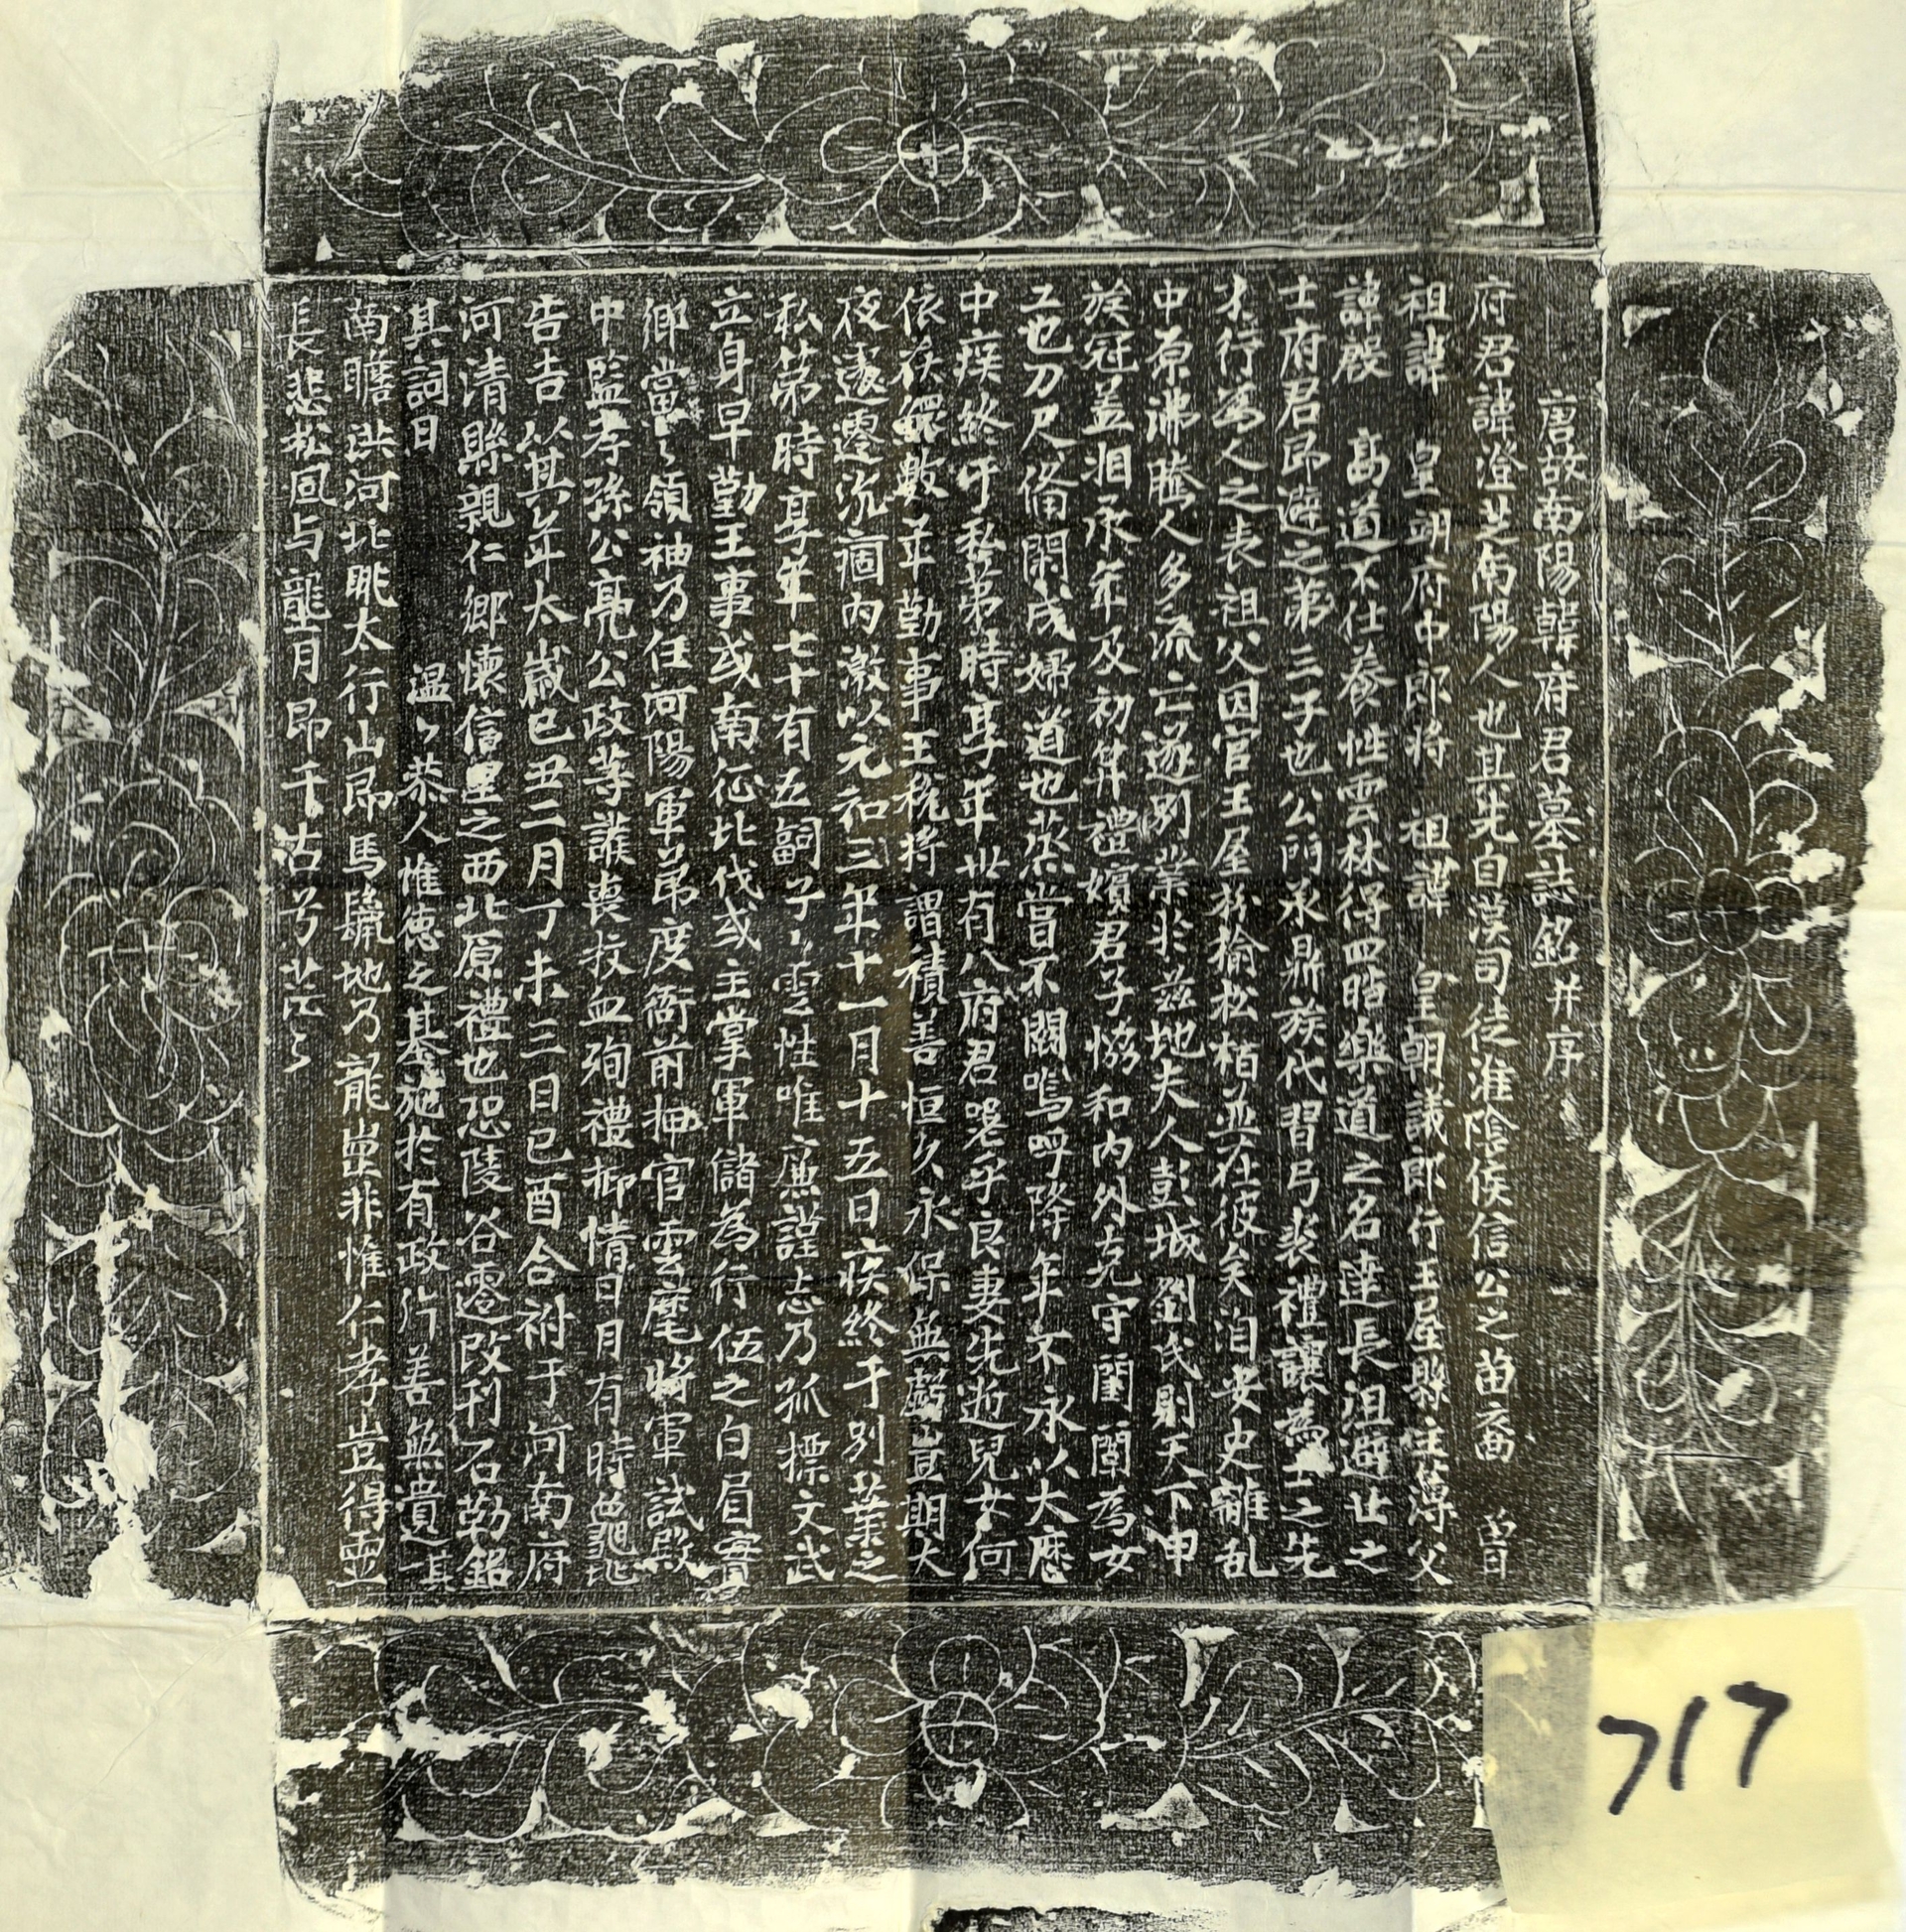 唐故南陽韓府君墓誌銘并序
府君諱澄芝南陽人也其先自漢司徒淮陰侯信公之苗裔 曾
祖諱 皇朝府中郎将 祖諱 皇朝議郎行王屋縣主薄父
諱殷 高道不仕養性雲林得四皓樂道之名達長沮避世之
士府君即避之弟三子也公門承鼎族代習弓裘禮讓為士之先
才行為人之表祖父因官王屋枌榆松栢並在彼矣洎安史離乱
中原沸騰人多流亡遂別業於兹地夫人彭城劉氏則天下甲
族冠盖相承年及初笄禮嬪君子恊和內外克守閨閫為女
工也刀尺俻閑成婦道也蒸甞不闕嗚呼降年不永以大曆
中疾終于私弟時享年卌有八府君嗟乎良妻先逝兒女何
依荏苒數年勤事王税将謂積善恒久永保無虧豈期大
夜遽遷沉痼內激以元和三年十一月十五日疾終于別業之
私第時享年七十有五嗣子子雲性唯廉謹志乃孤標文武
立身早勤王事或南征北伐或主掌軍儲為行伍之白眉實
鄉黨之領袖乃任河陽軍節度衙前押官雲麾將軍試殿
中監孝孫公亮公政等護喪扶血殉禮抑情日月有時龜兆
告吉以其年太歲己丑二月丁未三日己酉合祔于河南府
河清縣親仁鄉懷信里之西北原禮也恐陵谷遷改刊石勒銘
其詞曰 温々恭人惟德之基施於有政所善無遺其
南瞻洪河北眺太行山即馬鬛地乃龍崗非惟仁孝豈得靈
長悲松風与龍月昂千古兮茫々
717